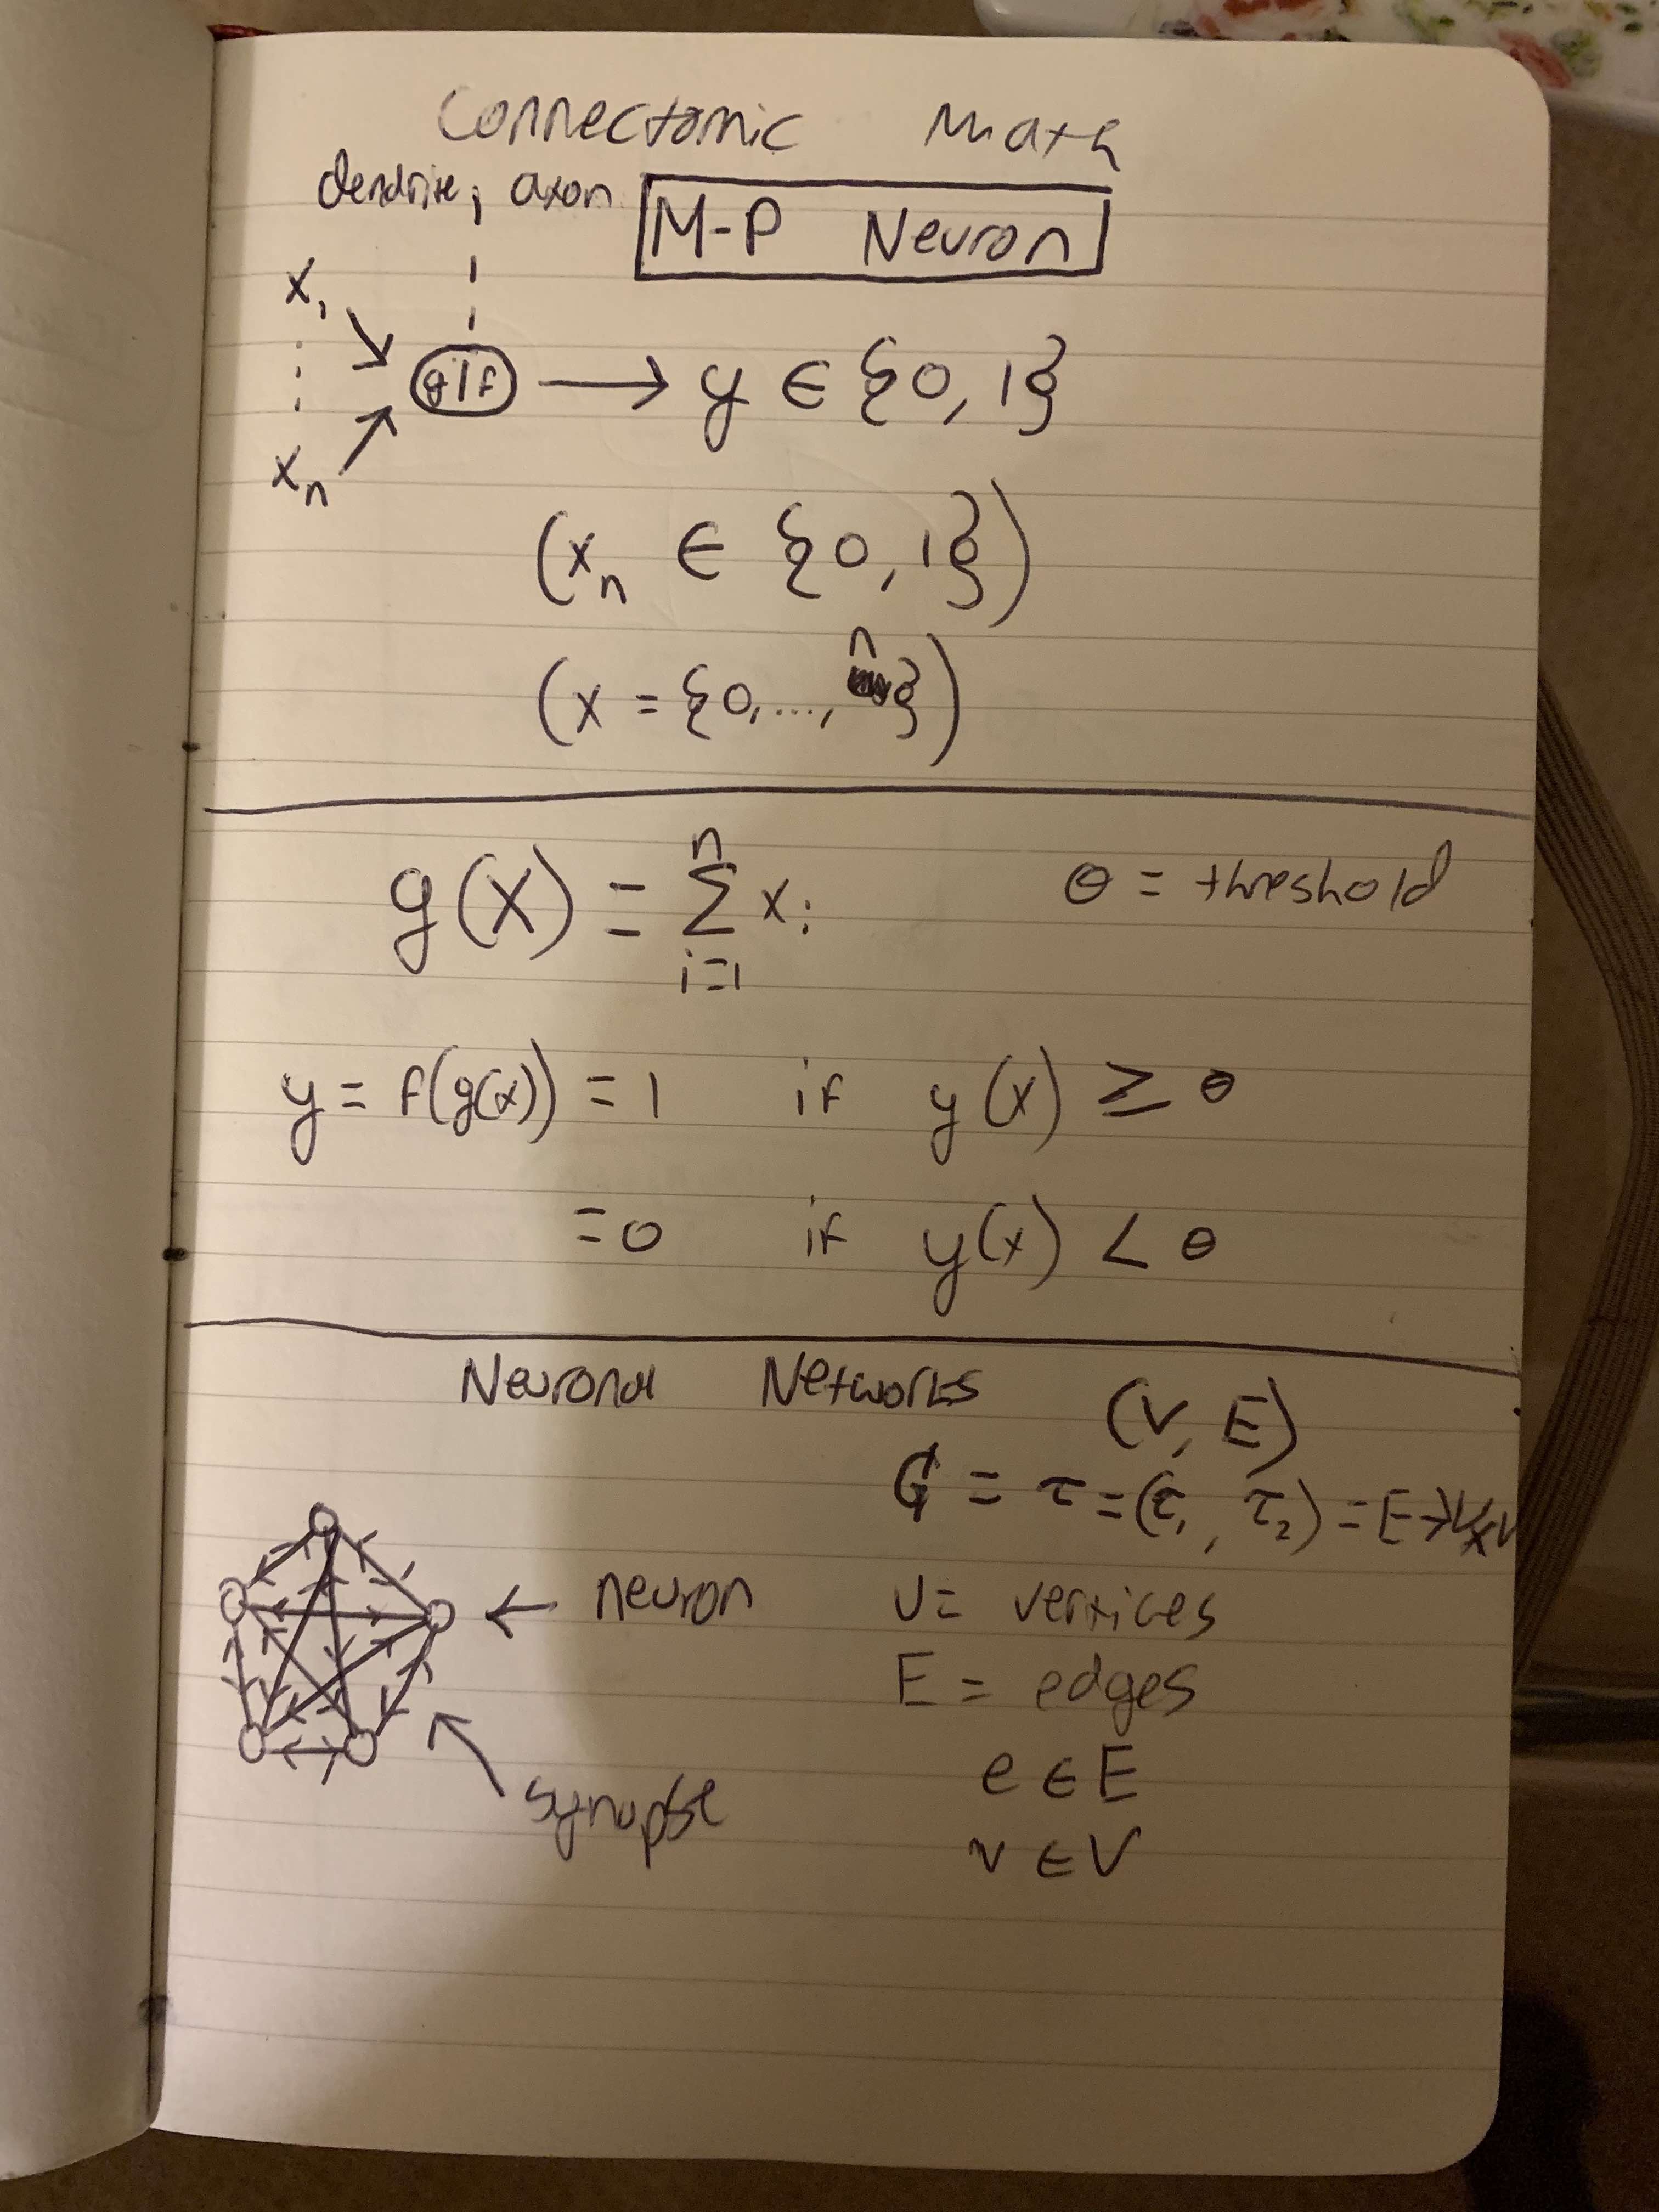 Connectomic Math
dendrite, axon
M-P Neuron
x₁
g|f → y ∈ {0, 1}
xₙ
(xₙ ∈ {0, 1})
(x = {0, ..., n})
g(x) = Σ xᵢ (i=1 to n)
θ = threshold
y = f(g(x)) = 1 if y(x) ≥ θ
= 0 if y(x) < θ
Neuronal Networks
(V, E)
G = τ = (τ₁, τ₂) = E→V×V
← neuron
synapse
V = vertices
E = edges
e ∈ E
v ∈ V